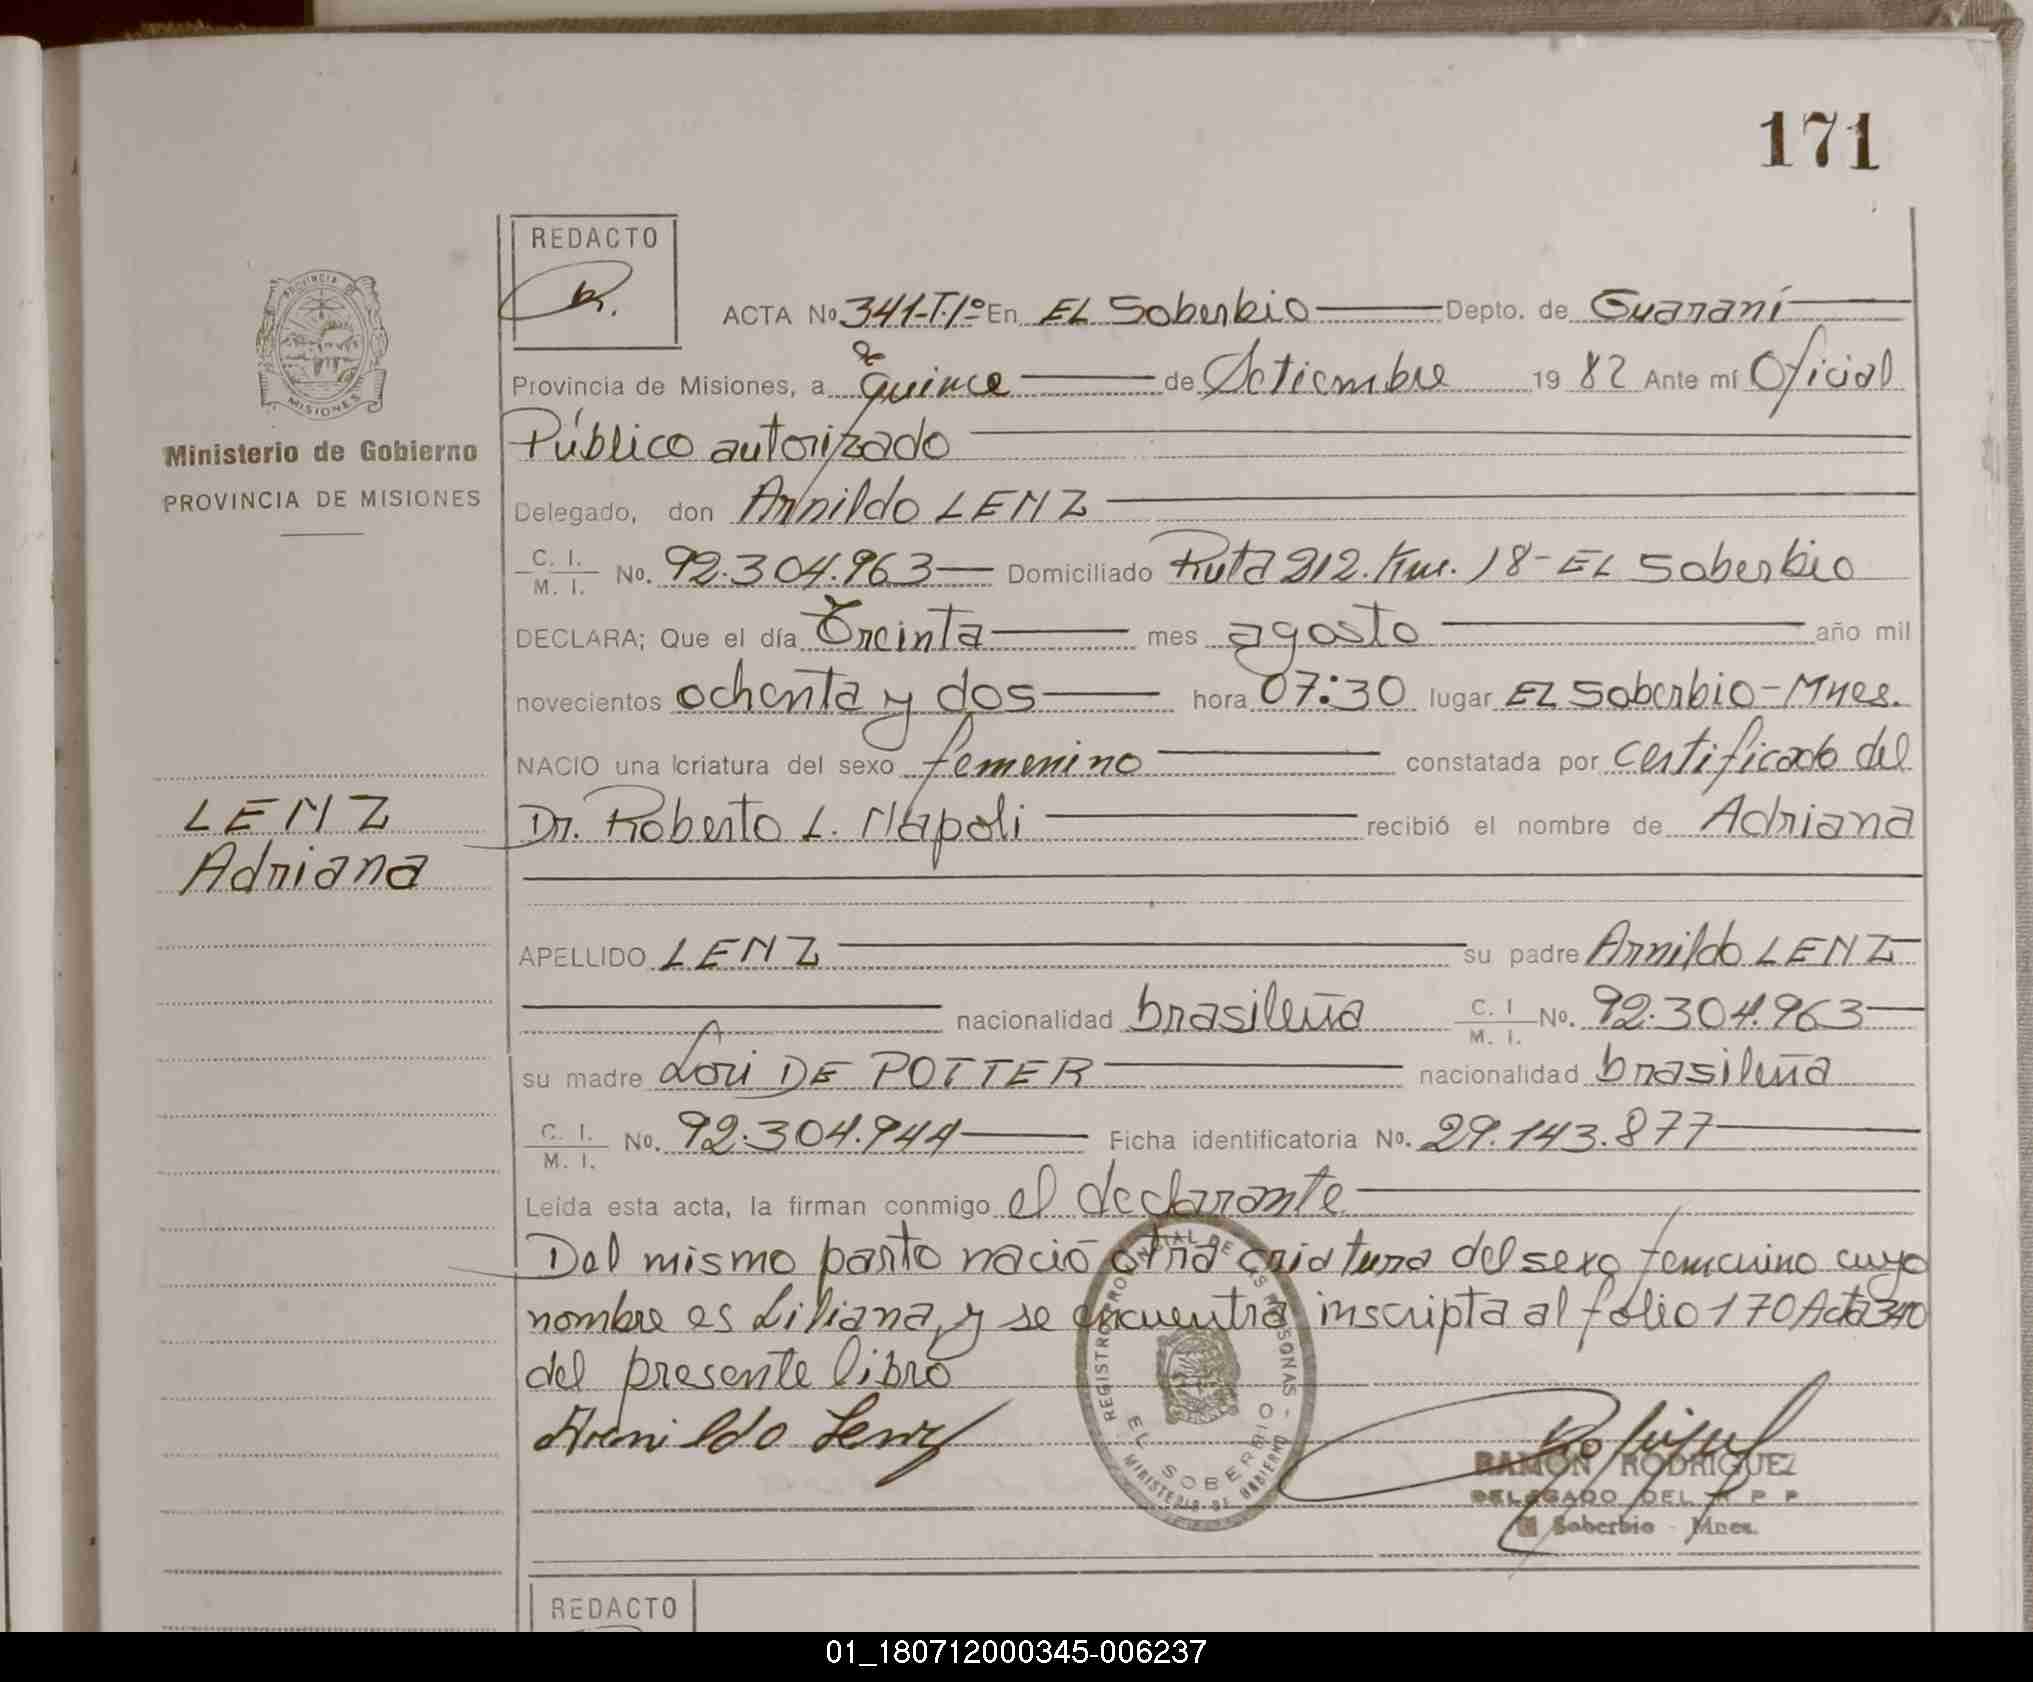 171
REDACTO
ACTA No 341-T.1º En EL Soberbio Depto. de Guaraní
Provincia de Misiones, a Quince de Setiembre 19 82 Ante mí Oficial
Público autorizado
Delegado, don Arnildo LENZ
C. I. M. I. No. 92.304.963 Domiciliado Ruta 212. Km. 18 - EL Soberbio
DECLARA; Que el día Treinta mes agosto año mil
novecientos ochenta y dos hora 07:30 lugar EL Soberbio - Mnes.
NACIO una criatura del sexo femenino constatada por certificado del
Dr. Roberto L. Napoli recibió el nombre de Adriana
APELLIDO LENZ su padre Arnildo LENZ
nacionalidad brasileña C. I M. I. No. 92.304.963
su madre Lori DE POTTER nacionalidad brasileña
C. I. M. I. No. 92.304.944 Ficha identificatoria No. 29.143.877
Leída esta acta, la firman conmigo el declarante
Del mismo parto nació otra criatura del sexo femenino cuyo
nombre es Liliana, y se encuentra inscripta al folio 170 Acta 340
del presente libro
Arnildo Lenz
REGISTRO PROVINCIAL DE LAS PERSONAS -
EL SOBERBIO
MINISTERIO DE GOBIERNO
RAMON RODRIGUEZ
DELEGADO DEL R P P
El Soberbio - Mnes.
PROVINCIA DE
MISIONES
Ministerio de Gobierno
PROVINCIA DE MISIONES
LENZ
Adriana
REDACTO
01_180712000345-006237